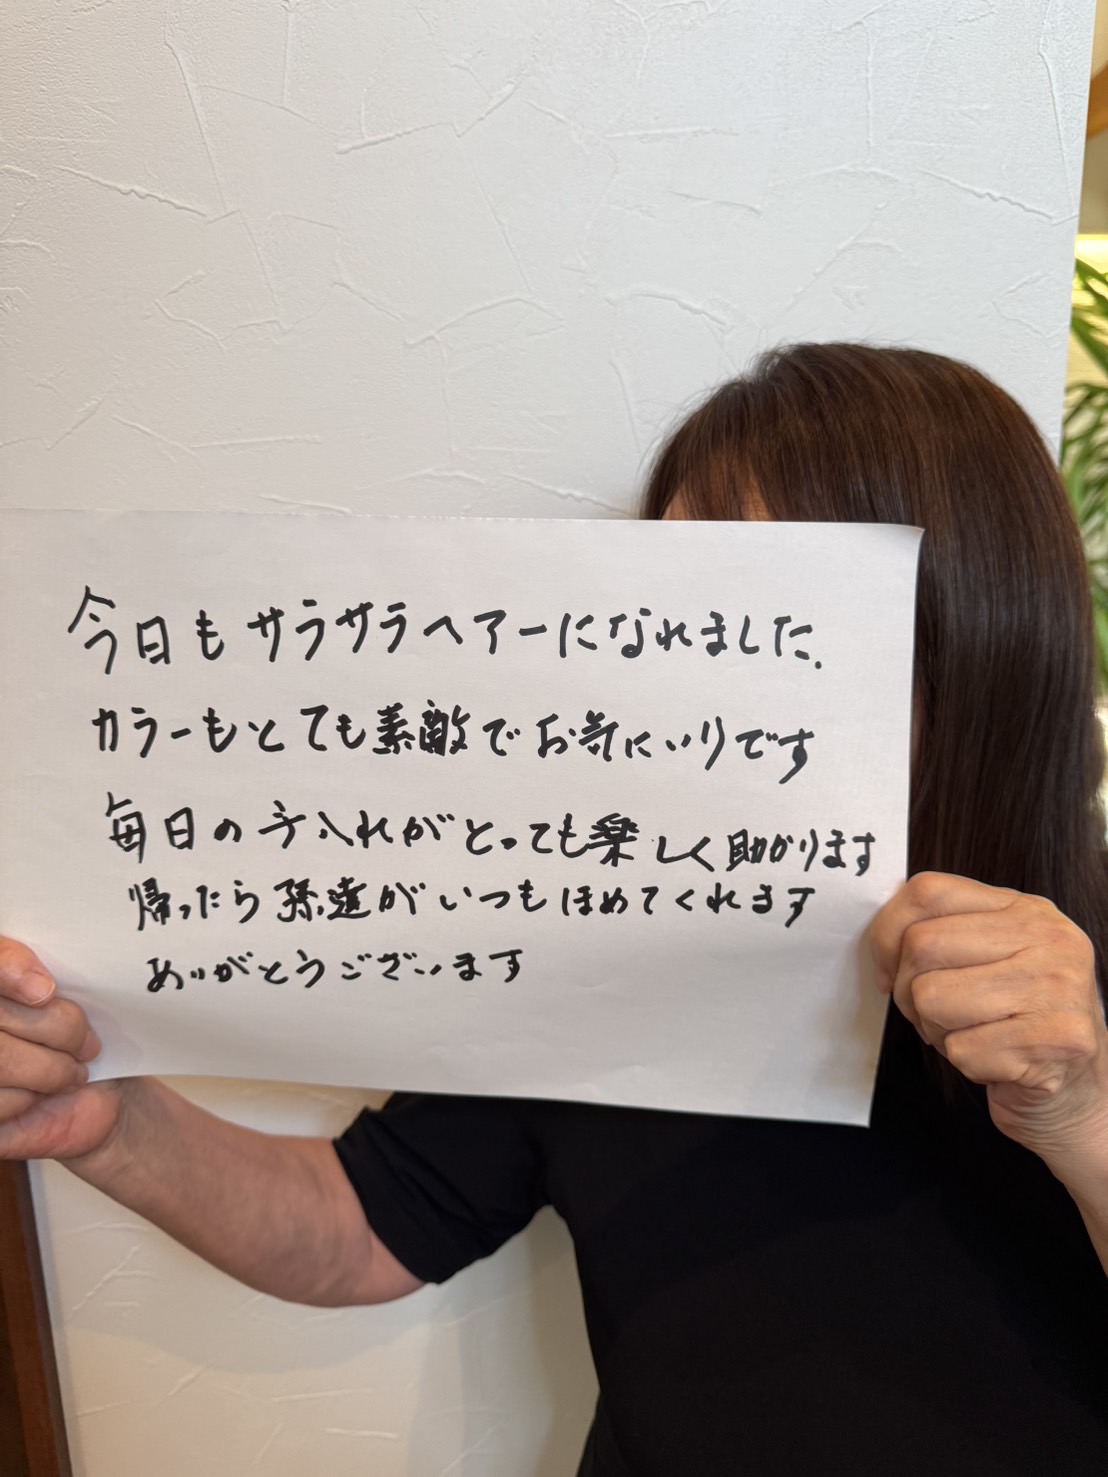 今日もサラサラヘアーになれました.
カラーもとても素敵でお気にいりです
毎日の手入れがとっても楽しく助かります
帰ったら孫達がいつもほめてくれます
ありがとうございます